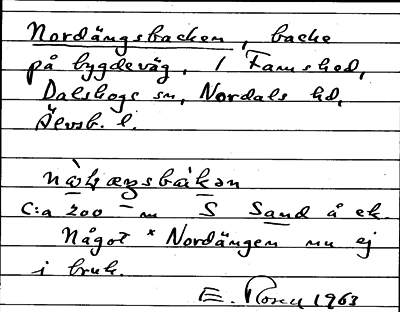 Nordängsbacken, backe
på bygdeväg, i
Dalskogs sn, Nordals hd,
Älvsb. l.
C:a 200 m S Sand å ek.
Något * Nordängen nu ej
i bruk.
E. Rosen 1963